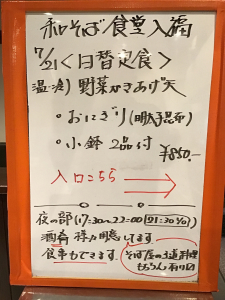 和そば食堂入福
7/21<日替定食>
温・冷) 野菜かきあげ天
・おにぎり(明太子昆布)
・小鉢 2品付
¥850.-
入口こちら
夜の部(17:30〜22:00 (21:30 %)
酒肴 様々用意してます
食事もできます。
そば屋の王道料理
もちろん有り〼